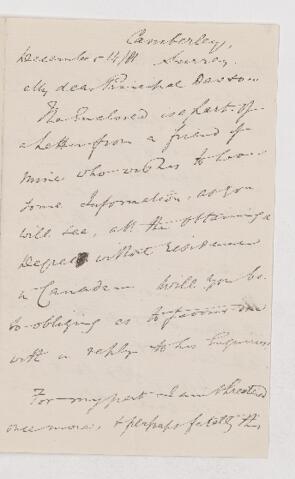 Camberley,
December 14/81 Surrey.
My dear Principal Dawson
The Enclosed is part of
a Letter from a friend of
mine who wishes to have
some Information, as you
will see, abt the obtaining a
Degree without residence
in Canada. Will you be
so obliging as to favour me
with a reply to his Enquiries
For my part I am threatened
once more, & perhaps fatally this